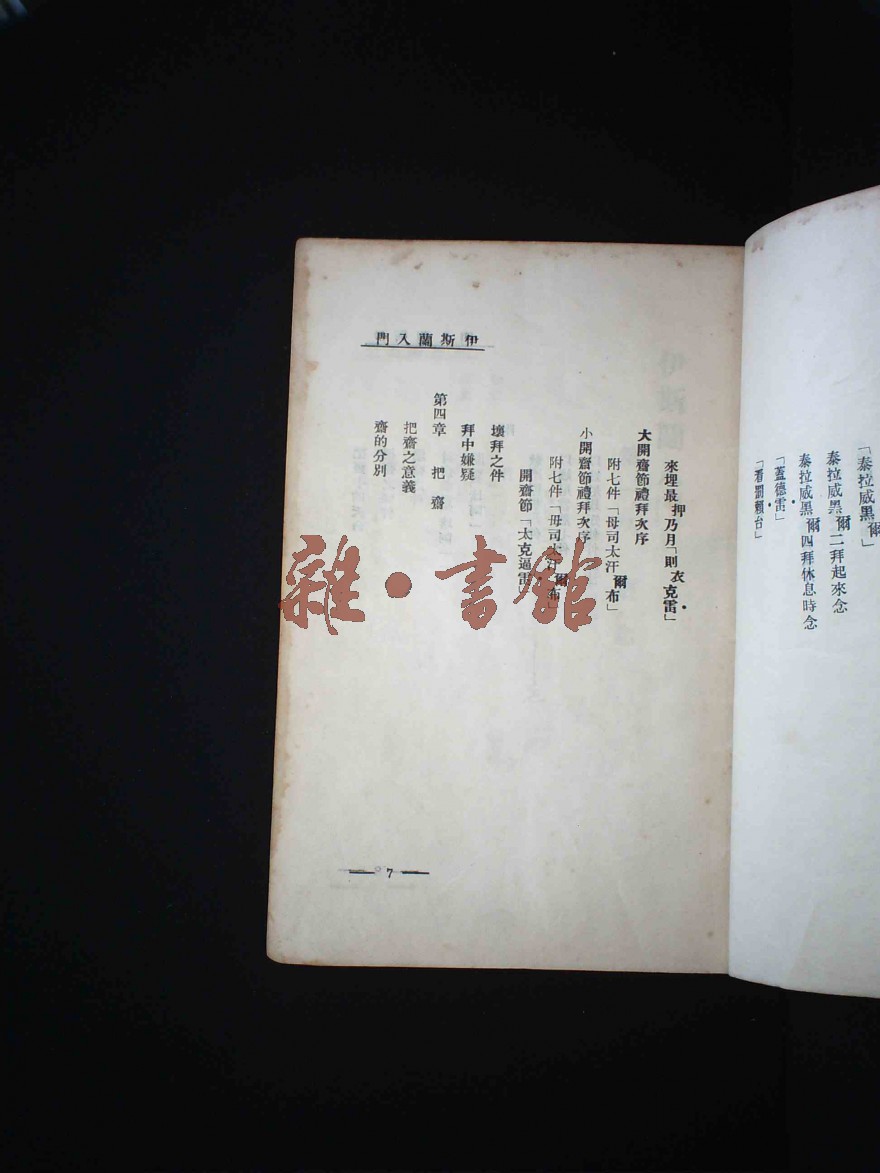 「泰拉威黑爾」
泰拉威黑爾二拜起來念
泰拉威黑爾四拜休息時念
「蓋德雷」
伊斯蘭入門
來埋最押乃月「則衣克雷」
大開齋節禮拜次序
附七件「母司太汗爾布」
小開齋節禮拜次序
附七件「母司太汗爾布」
開齋節「太克逼雷」
壞拜之件
拜中嫌疑
第四章 把齋
把齋之意義
齋的分別
— 7 —
雜·書館